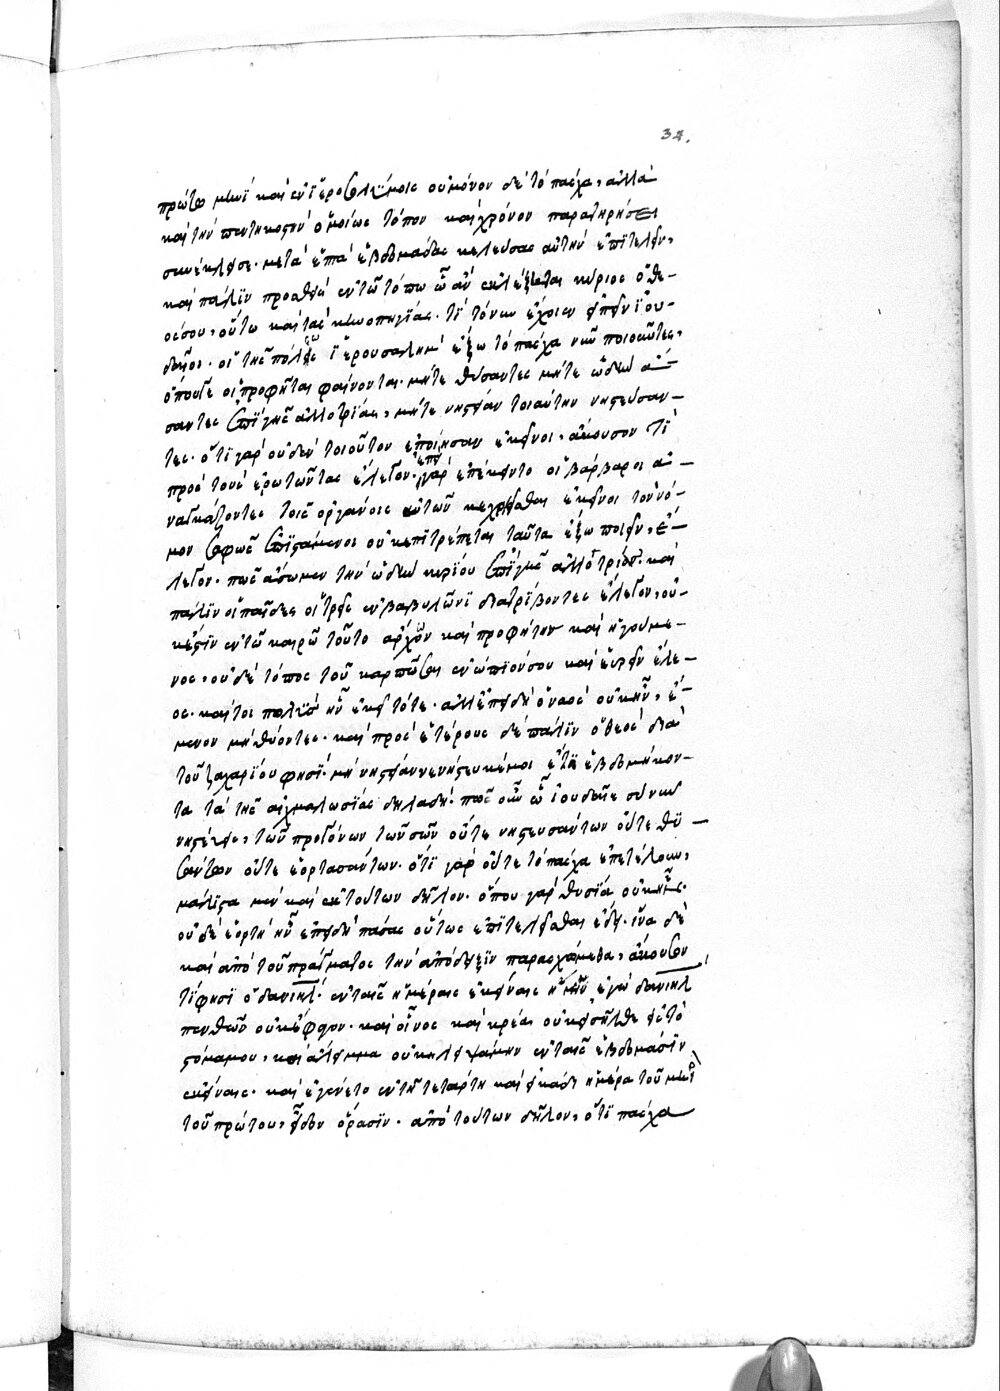 34.
πρώτω μηνὶ καὶ ἐν ἱεροσολύμοις οὐ μόνον δὲ τὸ πάσχα, ἀλλὰ
καὶ τὴν πεντηκοστὴν ὁμοίως τόπον καὶ χρόνον παρατηρήσει
συνέκλεισε. μετὰ ἑπτὰ ἑβδομάδας κελεύσας αὐτὴν ἐπιτελεῖν,
καὶ πάλιν προσθεὶς ἐν τῶ τόπω ὧ ἂν ἐκλέξεται κύριος ὁ θε-
ός σου, οὕτω καὶ τὰς σκηνοπηγίας. τί τοίνυν ἔχοιεν εἰπεῖν ἰου-
δαῖοι. οἱ τῆς πόλεως ἱερουσαλὴμ ἔξω τὸ πάσχα νῦν ποιοῦντες,
ὁπότε οἱ προφῆται φαίνονται. μήτε θύσαντες μήτε ὠδὴν ἄ-
σαντες ἐπὶ γῆς ἀλλοτρίας, μήτε νηστείαν τοιαύτην νηστεύσαν-
τες. ὅτι γὰρ οὐδὲν τοιοῦτον ἐποίησαν ἐκεῖνοι, ἄκουσον τί
πρὸς τοὺς ἐρωτῶντας ἔλεγον. ἐπεὶ γὰρ ἐπέκειντο οἱ βάρβαροι ἀ-
ναγκάζοντες τοῖς ὀργάνοις αὐτῶν κεχρῆσθαι ἐκεῖνοι τὸν νό-
μον σαφῶς ἐπιστάμενοι οὐκ ἐπιτρέπεται ταῦτα ἔξω ποιεῖν, ἔ-
λεγον. πῶς ἄσωμεν τὴν ὠδὴν κυρίου ἐπὶ γῆς ἀλλοτρίας. καὶ
πάλιν οἱ παῖδες οἱ τρεῖς ἐν βαβυλῶνι διατρίβοντες ἔλεγον, οὐ-
κ ἔστιν ἐν τῶ καιρῶ τούτω ἄρχων καὶ προφήτην καὶ ἡγούμε-
νος, οὐδὲ τόπος τοῦ καρπῶσαι ἐνώπιόν σου καὶ εὑρεῖν ἔλε-
ος. καίτοι πολὺς ἦν ἐκεῖ τότε. ἀλλ' ἐπειδὴ ὁ ναὸς οὐκ ἦν, ἔ-
μενον μὴ θύοντες. καὶ πρὸς ἑτέρους δὲ πάλιν ὁ θεὸς διὰ
τοῦ ζαχαρίου φησί. μὴ νηστείαν νενηστεύκατέ μοι ἔτη ἑβδομήκον-
τα τὰ τῆς αἰχμαλωσίας δηλαδή. πῶς οὖν ὦ ἰουδαῖε σὺ νῦν
νηστεύεις, τῶν προγόνων τῶν σῶν οὔτε νηστευσάντων οὔτε θυ-
σάντων οὔτε ἑορτασάντων. ὅτι γὰρ οὔτε τὸ πάσχα ἐπετέλουν,
μάλιστα μὲν καὶ ἐκ τούτων δῆλον. ὅπου γὰρ θυσία οὐκ ἦν,
οὐδὲ ἑορτὴ ἦν ἐπειδὴ πάσας οὕτως ἐπιτελεῖσθαι ἔδει. ἵνα δὲ
καὶ ἀπὸ τοῦ πράγματος τὴν ἀπόδειξιν παρασχώμεθα, ἄκουσον
τί φησὶ ὁ δανιὴλ. ἐν ταῖς ἡμέραις ἐκείναις ἤμην ἐγὼ δανιὴλ
πενθῶν οὐκ ἔφαγον. καὶ οἶνος καὶ κρέας οὐκ εἰσῆλθε εἰς τὸ
στόμα μου, καὶ ἄλειμμα οὐκ ἠλειψάμην ἐν ταῖς ἑβδομάσιν
ἐκείναις. καὶ ἐγένετο ἐν τῆ τετάρτη καὶ εἰκάδι ἡμέρα τοῦ μηνὸς
τοῦ πρώτου, εἶδον ὅρασιν. ἀπὸ τούτων δῆλον, ὅτι πάσχα